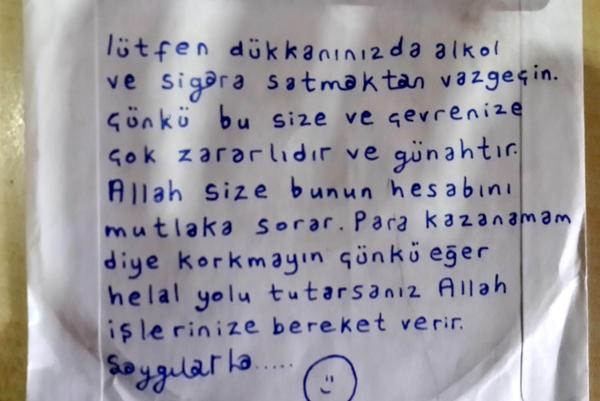 lütfen dükkanınızda alkol
ve sigara satmaktan vazgeçin.
Çünkü bu size ve çevrenize
çok zararlıdır ve günahtır.
Allah size bunun hesabını
mutlaka sorar. Para kazanamam
diye korkmayın çünkü eğer
helal yolu tutarsanız Allah
işlerinize bereket verir.
Saygılarla.....